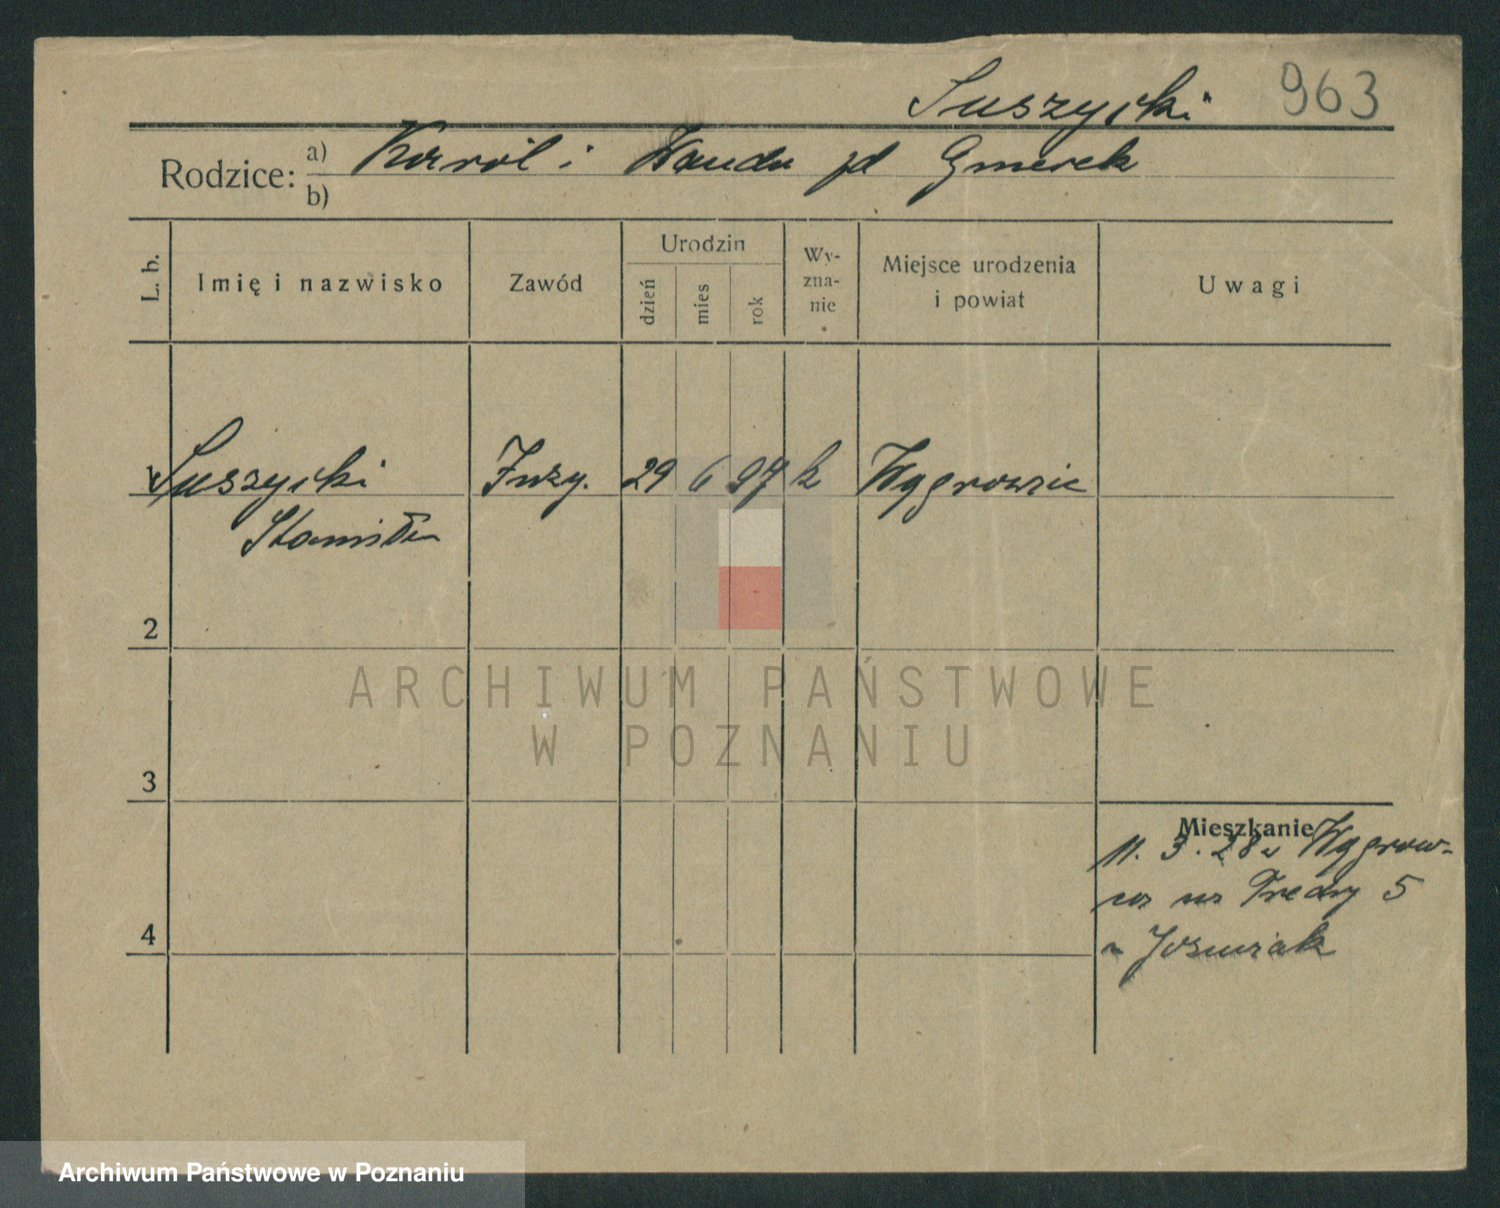 Suszycki 963
Rodzice: a) Karól i Wanda zd Gmerek
b)
L. b. Imię i nazwisko Zawód Urodzin dzień mies rok Wy-zna-nie Miejsce urodzenia i powiat Uwagi
1 Suszycki Inży. 29 6 97 k Wągrowiec
Stanisław
2
ARCHIWUM PAŃSTWOWE
W POZNANIU
3
Mieszkanie
11. 3. 28 z Wągrow-
ca na Fredry 5
Archiwum Państwowe w Poznaniu
4